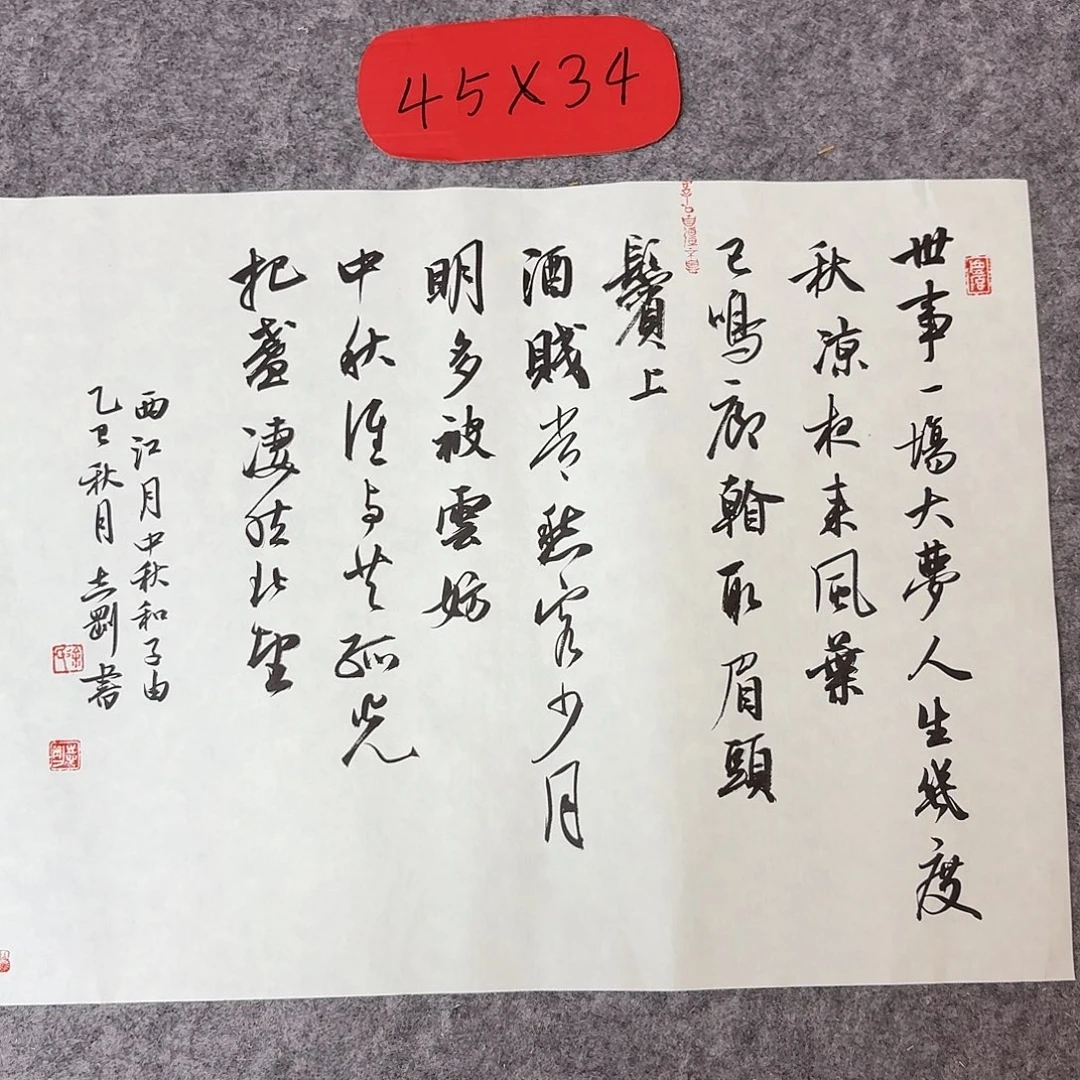 45X34
世事一場大夢人生幾度
秋凉夜来風葉
已鳴廊翰取眉頭
鬢上
酒賤常愁客少月
明多被雲妨
中秋誰与共孤光
把盞凄然北望
西江月中秋和子由
乙巳秋月志剛書